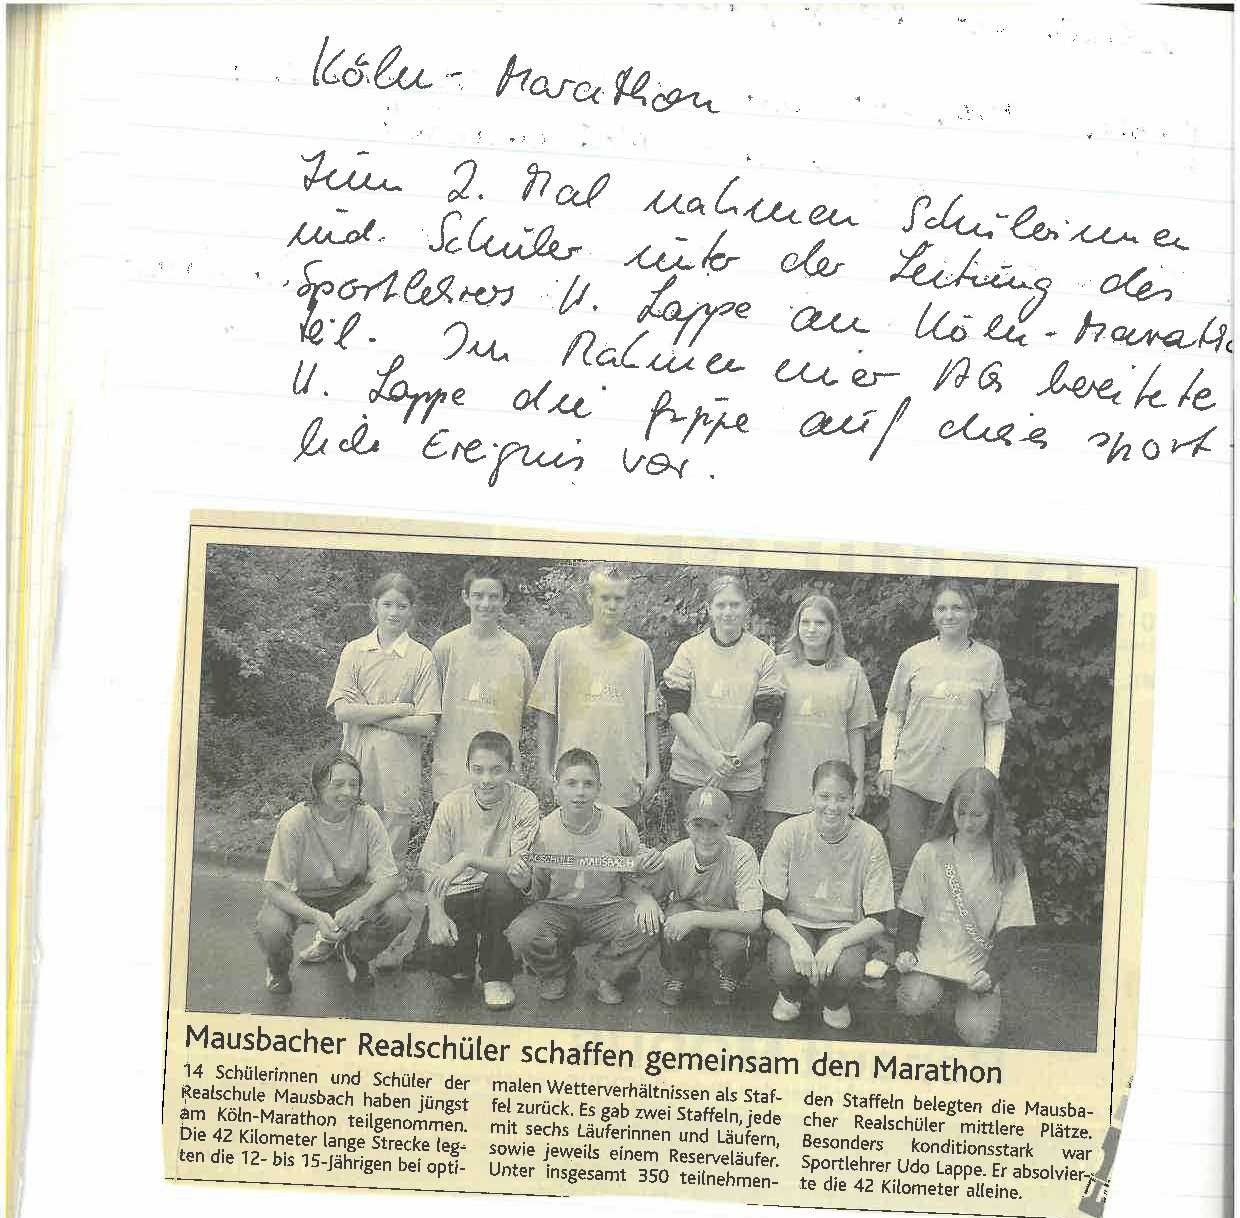 Köln - Marathon
Zum 2. Mal nahmen Schülerinnen
und Schüler unter der Leitung des
Sportlehrers U. Lappe am Köln-Marath
teil. Im Rahmen einer AG bereitete
U. Lappe die Gruppe auf dieses sport-
liche Ereignis vor.
REALSCHULE MAUSBACH
Mausbacher Realschüler schaffen gemeinsam den Marathon
14 Schülerinnen und Schüler der
Realschule Mausbach haben jüngst
am Köln-Marathon teilgenommen.
Die 42 Kilometer lange Strecke leg-
ten die 12- bis 15-Jährigen bei opti-
malen Wetterverhältnissen als Staf-
fel zurück. Es gab zwei Staffeln, jede
mit sechs Läuferinnen und Läufern,
sowie jeweils einem Reserveläufer.
Unter insgesamt 350 teilnehmen-
den Staffeln belegten die Mausba-
cher Realschüler mittlere Plätze.
Besonders konditionsstark war
Sportlehrer Udo Lappe. Er absolvier-
te die 42 Kilometer alleine.